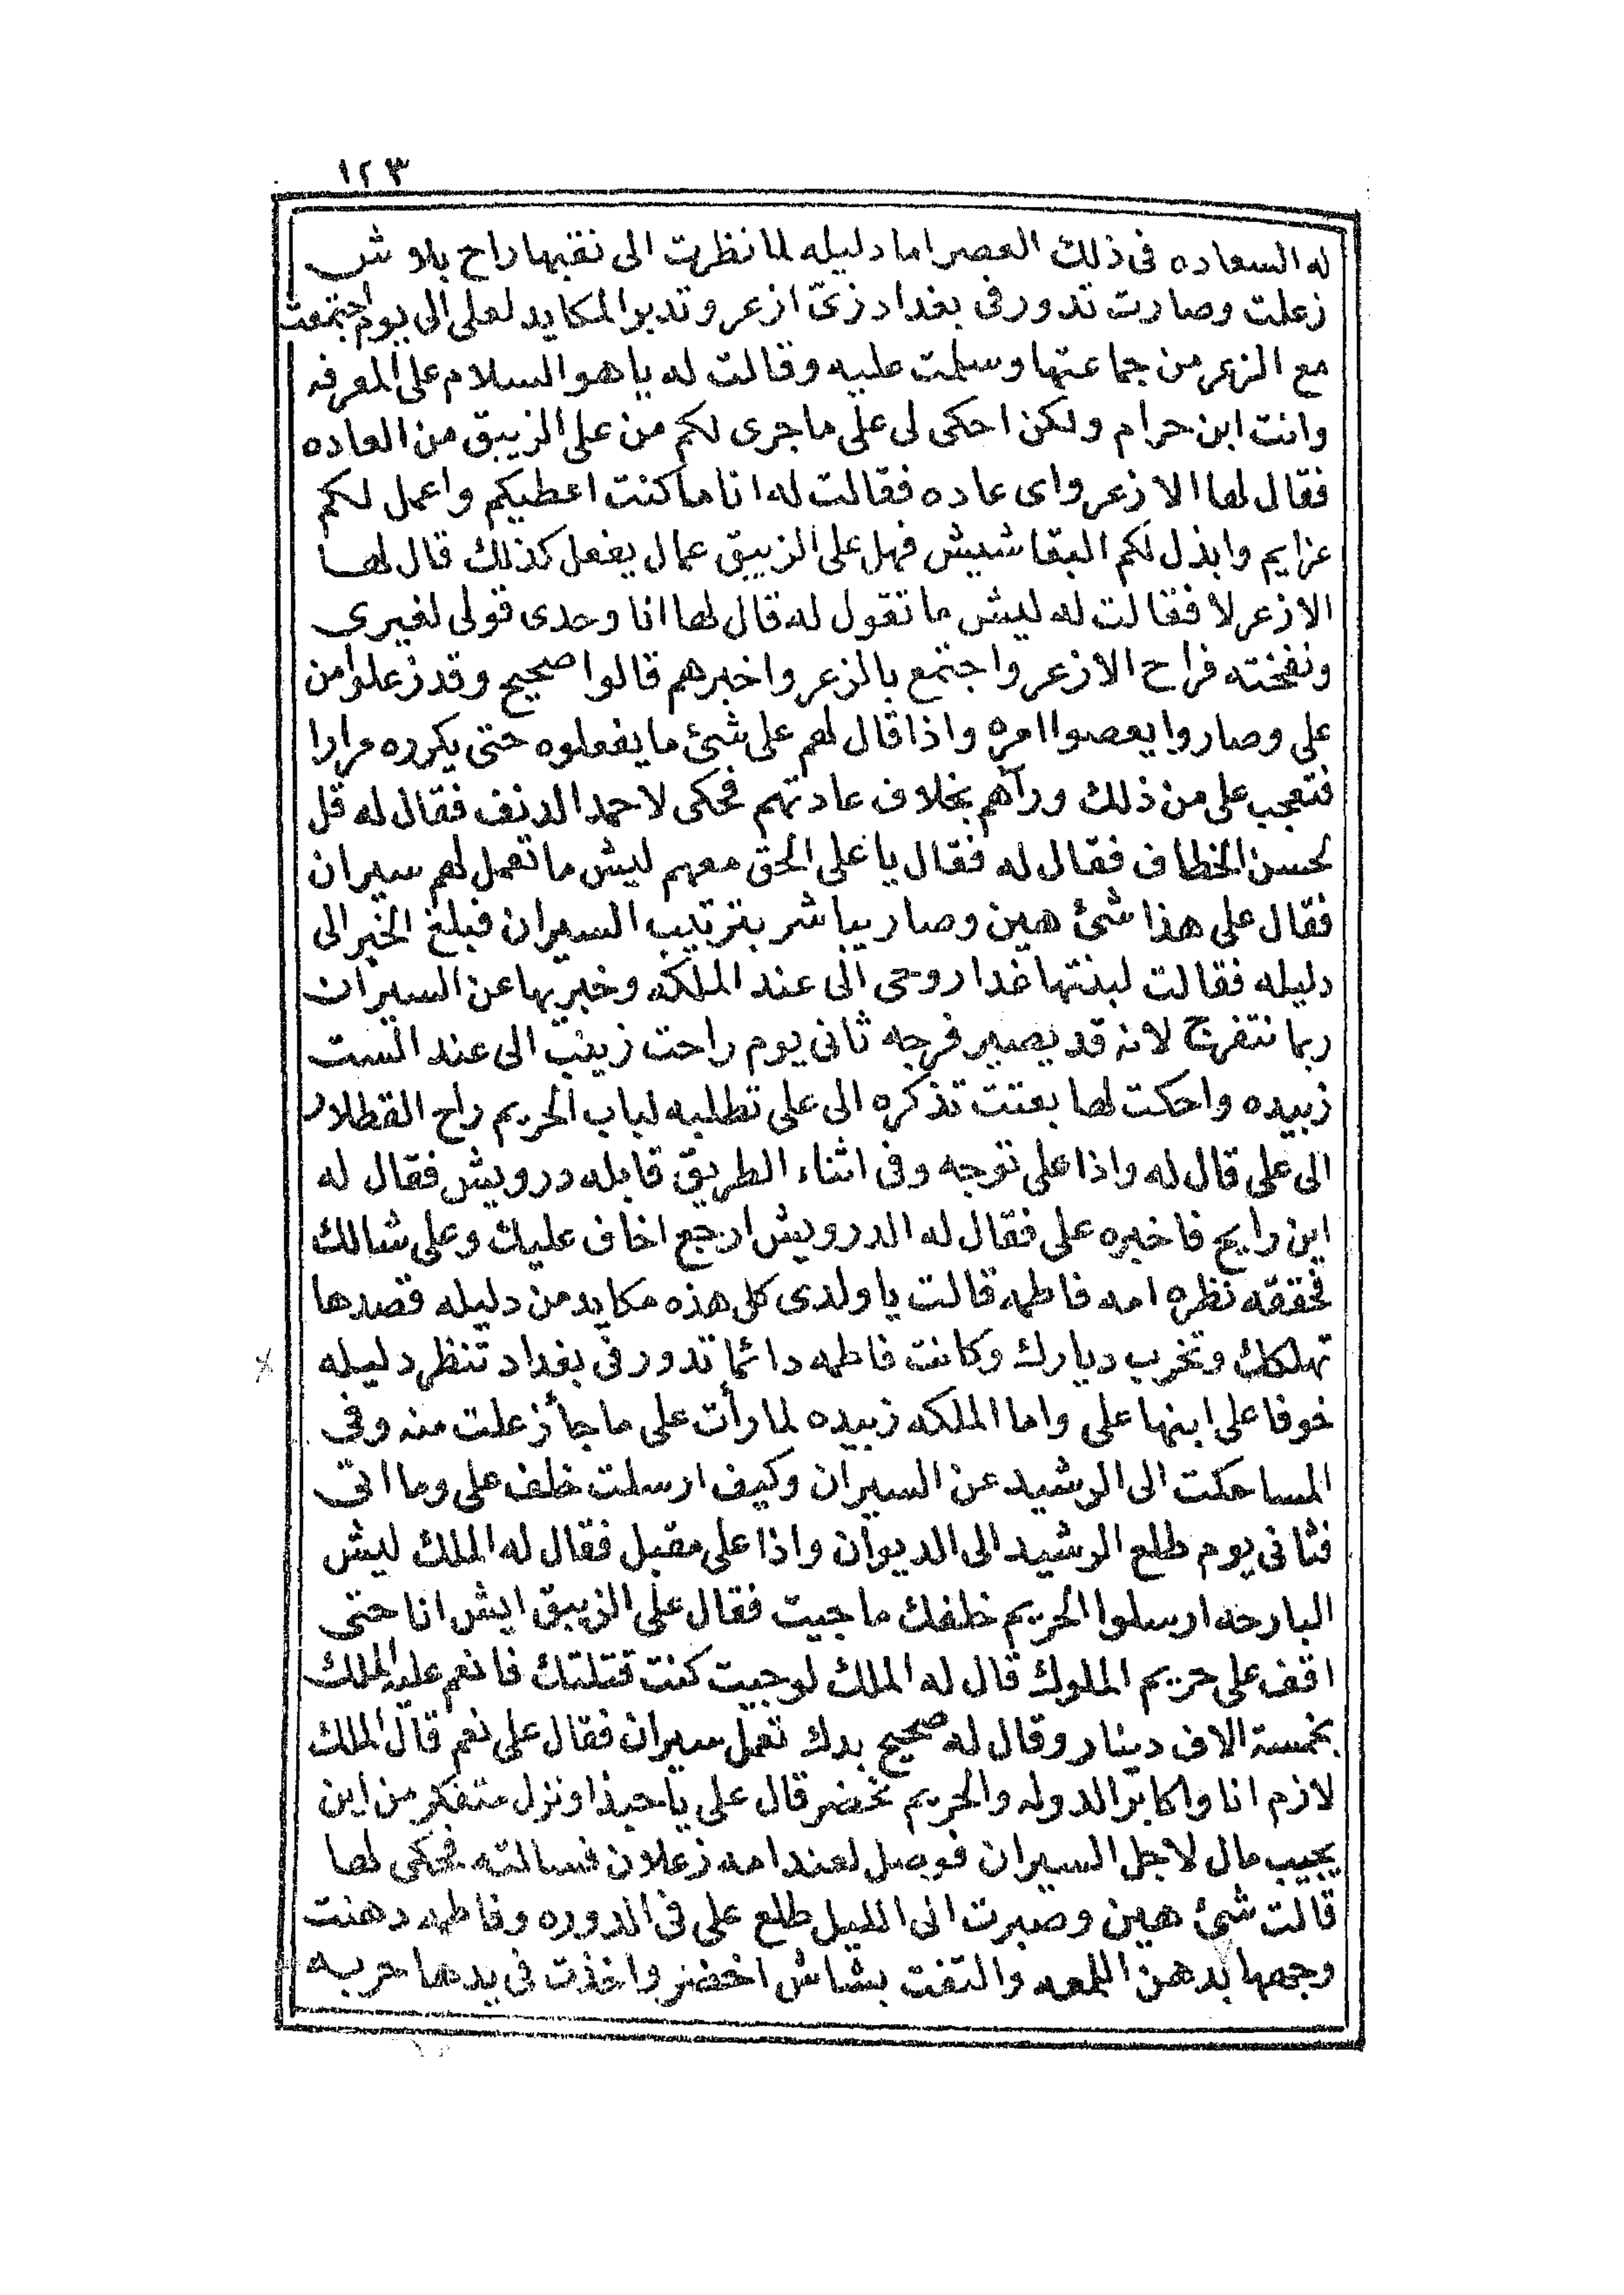 ١٢٣
له السعاده فى ذلك العصر اما دليله لما نظرت الى نقبها راح بلاوش
زعلت وصارت تدور فى بغداد زىّ ازعر وتدبر المكايد لعلى الى يوم اجتمعت
مع الزعر من جماعتها وسلمت عليه وقالت له ياهو السلام على المعرفه
وانت ابن حرام ولكن احكى لى على ماجرى لكم من على الزيبق من العاده
فقال لها الازعر واى عاده فقالت له انا ما كنت اعطيكم واعمل لكم
عزايم وابذل لكم البقاشيش فهل على الزيبق عمال يفعل كذلك قال لها
الازعر لا فقالت له ليش ما تقول له قال لها انا وحدى قولى لغيرى
ونفخته فراح الازعر واجتمع بالزعر واخبرهم قالوا صحيح وقد زعلوا من
على وصاروا يعصوا امره واذا قال لهم على شئ ما يفعلوه حتى يكرره مرارا
فتعجب على من ذلك ورآهم بخلاف عادتهم فحكى لاحمد الدنف فقال له قل
لحسن الخطاف فقال له فقال يا على الحق معهم ليش ما تعمل لهم سيران
فقال على هذا شئ هين وصار يباشر بترتيب السيران فبلغ الخبر الى
دليله فقالت لبنتها غدا روحى الى عند الملكه وخبريها عن السيران
ربما نتفرج لانه قد يصير فرجه ثانى يوم راحت زينب الى عند الست
زبيده واحكت لها بعتت تذكره الى على تطلبه لباب الحريم راح القطلار
الى على قال له واذا على توجه وفى اثناء الطريق قابله درويش فقال له
اين رايح فاخبره على فقال له الدرويش ارجع اخاف عليك وعلى شالك
فحققه نظره امه فاطمه قالت ياولدى كل هذه مكايد من دليله قصدها
تهلكك وتخرب ديارك وكانت فاطمه دائما تدور فى بغداد تنظر دليله
خوفا على ابنها على واما الملكه زبيده لما رأت على ما جأ زعلت منه وفى
المسا حكت الى الرشيد عن السيران وكيف ارسلت خلف على وما اتى
فثانى يوم طلع الرشيد الى الديوان واذا على مقبل فقال له الملك ليش
البارحه ارسلوا الحريم خلفك ما جيت فقال على الزيبق ايش انا حتى
اقف على حريم الملوك قال له الملك لوجيت كنت قتلتك فانعم عليه الملك
بخمسة الاف دينار وقال له صحيح بدك تعمل سيران فقال على نعم قال الملك
لازم انا واكابر الدوله والحريم نحضر قال على ياحبذا ونزل متفكر من اين
يجيب مال لاجل السيران فوصل لعند امه زعلان فسالته فحكى لها
قالت شئ هين وصبرت الى الليل طلع على فى الدوره وفاطمه دهنت
وجهها بدهن اللمعه والتفت بشاش اخضر واخذت فى يدها حربه